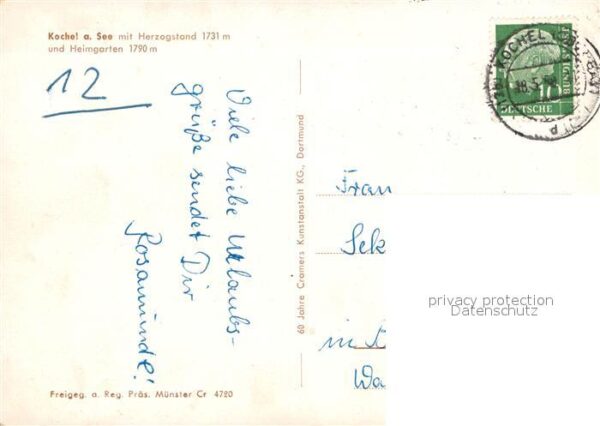 Kochel a. See mit Herzogstand 1731 m
und Heimgarten 1790 m
12
Viele liebe Urlaubs-
grüße sendet Dir
Rosamunde!
60 Jahre Cramers Kunstanstalt KG., Dortmund
Freigeg. d. Reg. Präs. Münster Cr 4720
KOCHEL
18.5.
10
DEUTSCHE
BUNDESPOST
Fran
Sek
in
Wa
privacy protection
Datenschutz